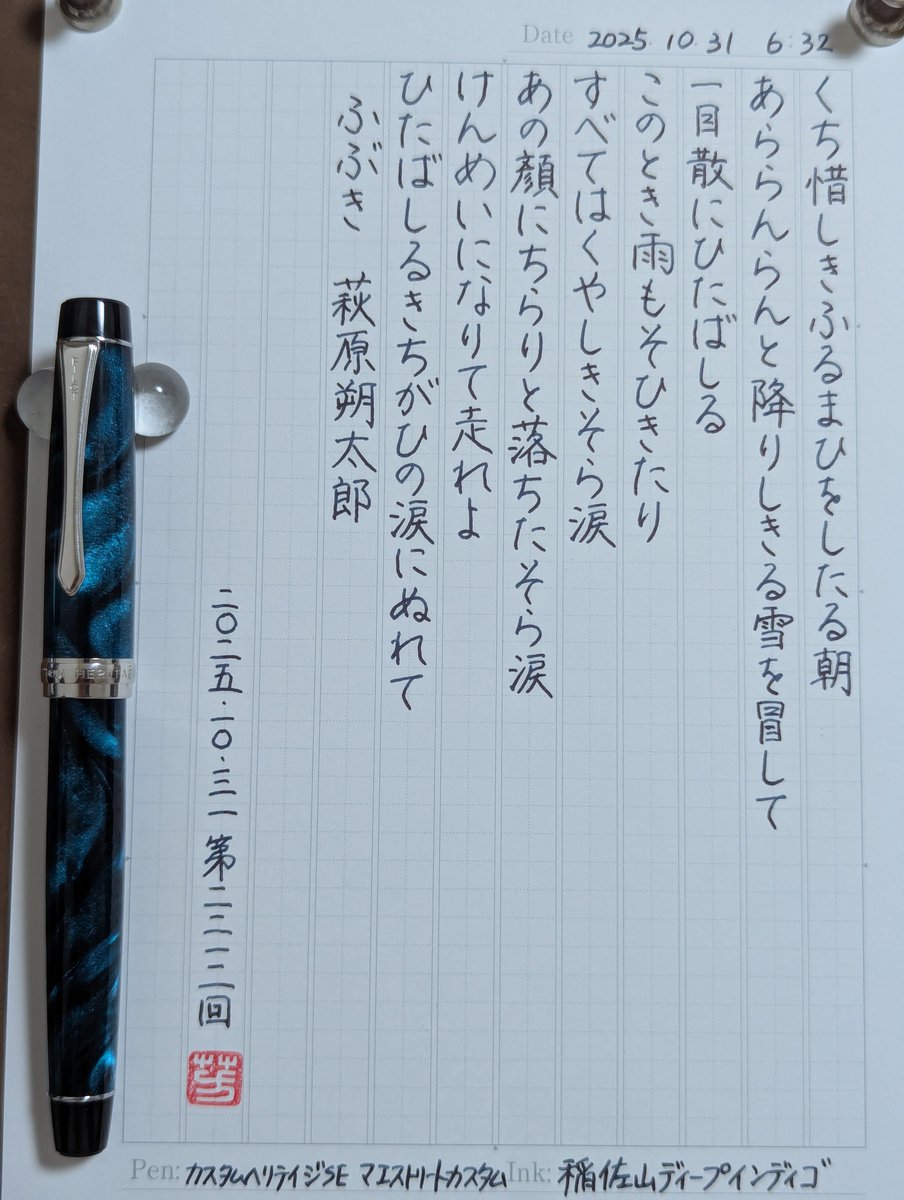 Date 2025 10 31 6:32
くち惜しきふるまひをしたる朝
あららんらんと降りしきる雪を冒して
一目散にひたばしる
このとき雨もそひきたり
すべてはくやしきそら涙
あの顔にちらりと落ちたそら涙
けんめいになりて走れよ
ひたばしるきちがひの涙にぬれて
ふぶき 萩原朔太郎
二〇二五・一〇・三一 第二二一二回
PILOT
Pen: カスタムヘリテイジSE マエストリートカスタム Ink: 稲佐山ディープインディゴ